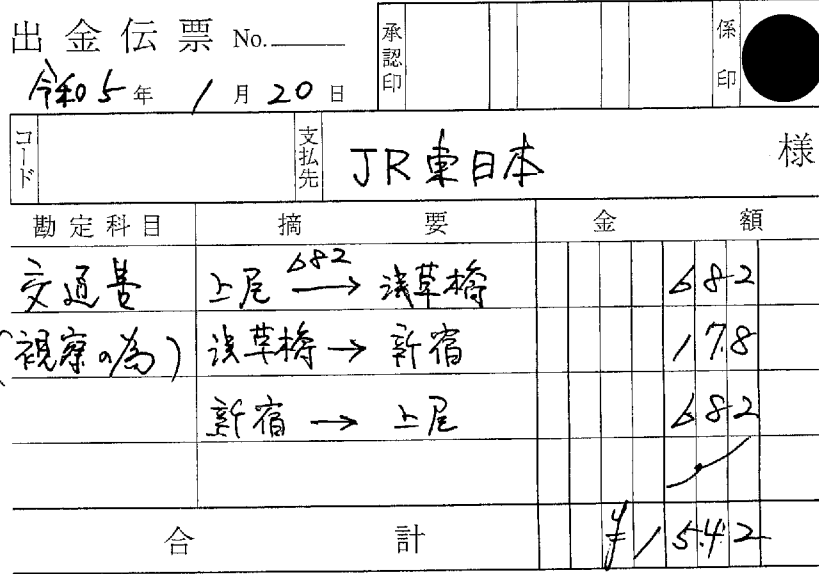 出金伝票 No.
承認印
係印
令和5年 1月20日
コード
支払先 JR東日本 様
勘定科目 摘要 金額
交通費 上尾 682→ 浅草橋 682
(視察の為) 浅草橋→新宿 178
新宿→上尾 682
合計 ¥1542